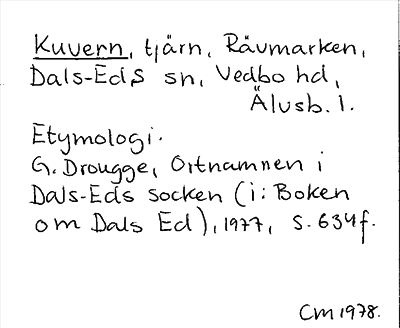 Kuvern, tjärn, Rävmarken,
Dals-Eds sn, Vedbo hd,
Älvsb. l.
Etymologi.
G. Drougge, Ortnamnen i
Dals-Eds socken (i: Boken
om Dals Ed), 1977, s. 634 f.
CM 1978.